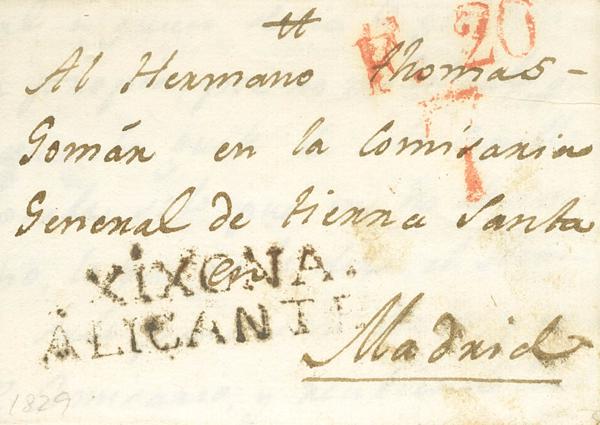 tt
R. 20
Al Hermano Thomas-
Gomár en la Comisaria
General de tierra Santa
en
XIXONA.
ALICANTE
Madrid
1829